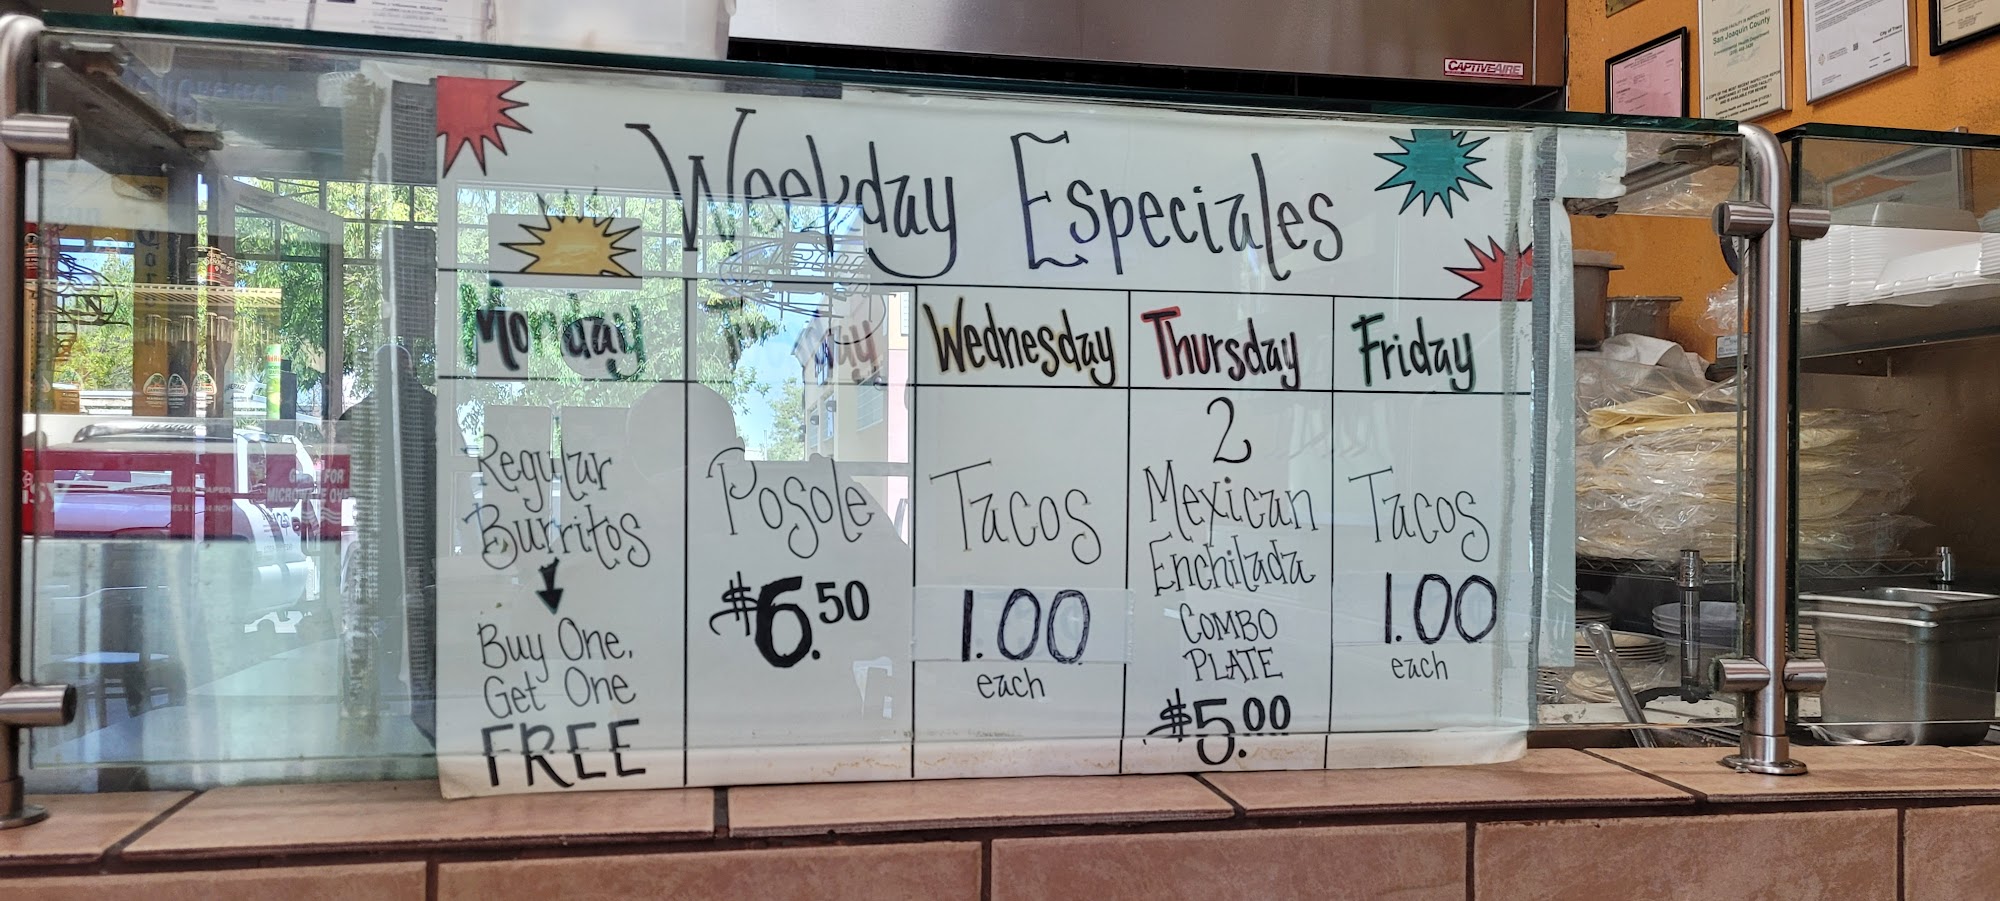 CAPTIVEAIRE
San Joaquin County
City of Tracy
Weekday Especiales
Monday
Tuesday
Wednesday
Thursday
Friday
Regular
Burritos
Buy One,
Get One
FREE
Posole
$6.50
Tacos
1.00
each
2
Mexican
Enchilada
COMBO
PLATE
$5.00
Tacos
1.00
each